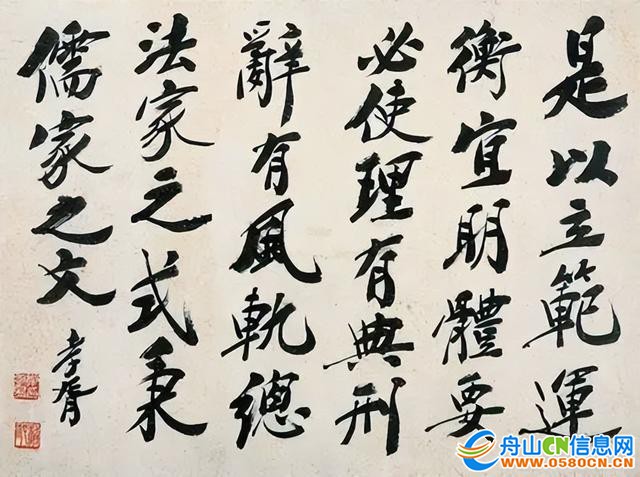 是以立範運
衡宜明體要
必使理有典刑
辭有風軌總
法家之式秉
儒家之文
孝胥
舟山CN信息网
www.0580CN.CN